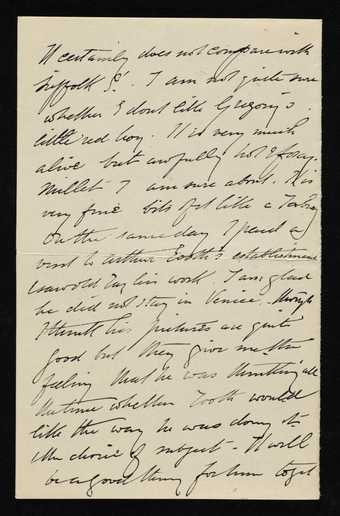 It certainly does not compare with
Suffolk St. I am not quite sure
whether I dont like Gregory's
little red boy. It is very much
alive but awfully hot & foxy.
Millet I am sure about. It is
very fine bits of it like a
On the same day I paid a
visit to Arthur Tooth's establishment
& saw old work. I am glad
he did not stay in Venice. though
I think his pictures are quite
good but they give me the
feeling that he was thinking all
the time whether Tooth would
like the way he was doing it
& the choice of subject - It will
be a good thing for him to get